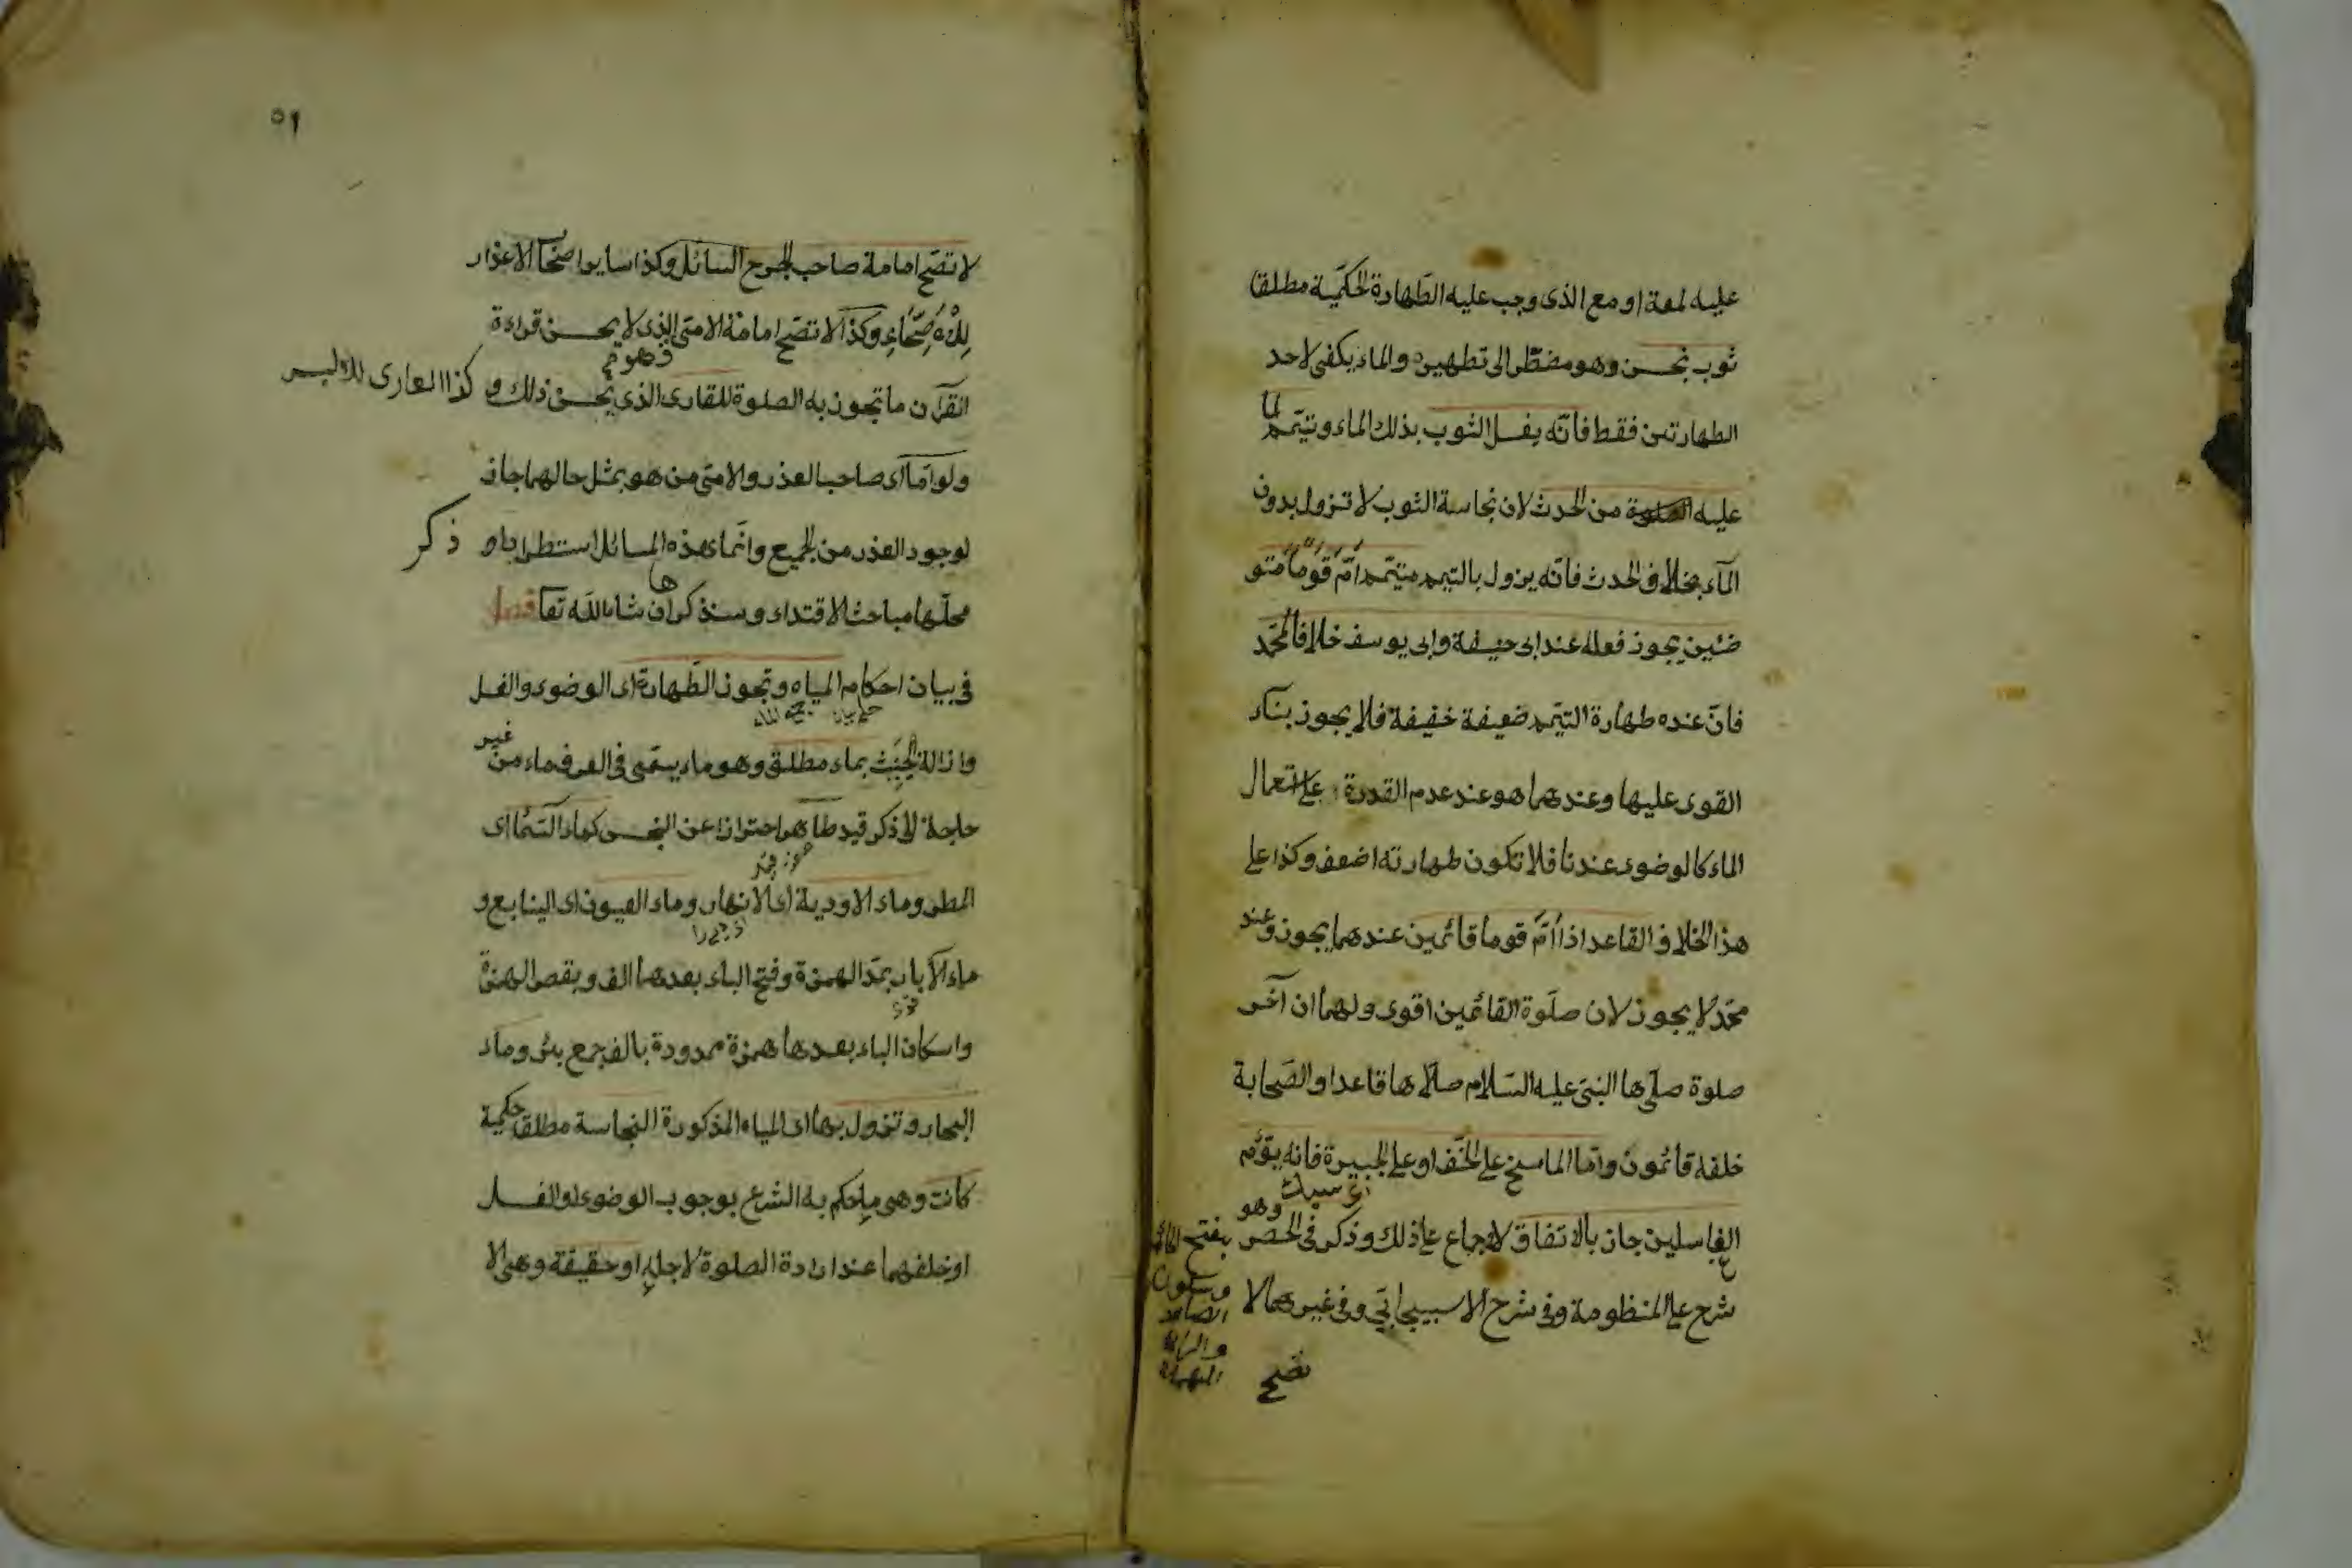 عليه لمعة او مع الذى وجب عليه الطهارة الحكمية مطلقا
ثوب نجس وهو مضطر الى تطهيره والماء يكفى لاحد
الطهارتين فقط فانه يغسل الثوب بذلك الماء وتيمم لما
عليه من الحدث لان نجاسة الثوب لا تزول بدون
الماء بخلاف الحدث فانه يزول بالتيمم متيمم أمّ قوما متو
ضئين يجوز فعله عند ابى حنيفة وابى يوسف خلافا لمحمد
فان عنده طهارة التيمم ضعيفة خفيفة فلا يجوز بناء
القوى عليها وعندهما هو عند عدم القدرة على استعمال
الماء كالوضوء عندنا فلا تكون طهارته اضعف وكذا على
هذا الخلاف القاعد اذا أمّ قوما قائمين عندهما يجوز وعند
محمد لا يجوز لان صلوة القائمين اقوى ولهما ان آخر
صلوة صلّيها النبى عليه السلام صلّاها قاعدا والصحابة
خلفه قائمون واما الماسح على الخف او على الجبيرة فانه يؤم
الغاسلين جاز بالاتفاق لاجماع على ذلك وذكر فى الحصر وهو بفتح
وسكون
الصاد
والراء
المهملة
شرح على المنظومة وفى شرح الاسبيجابى وفى غيرهما لا
تصح
٥١
لا تصح امامة صاحب الجرح السائل وكذا ساير اصحاب الاعذار
للاصحاء وكذا لا تصح امامة الامى الذى لا يحسن قراءة
القرآن ما تجوز به الصلوة للقارى الذى يحسن ذلك و كذا العارى للابس
ولو امّا اى صاحب العذر والامى من هو بمثل حالهما جاز
لوجود العذر من الجميع وانما هذه المسائل استطرادا و ذكر
محلها مباحث الاقتداء وسنذكرها ان شاء الله تعا فصل
فى بيان احكام المياه وتجوز الطهارة اى الوضوء والغسل
وازالة الخبث بماء مطلق وهو ما يسمى فى العرف ماء من غير
حاجة لا ذكر قيد طاهر احترازا عن النجس كماء السماء اى
المطر وماء الاودية اى الانهار وماء العيون اى الينابع و
ماء الآبار بمد الهمزة وفتح الباء بعدها الف وبقصر الهمزة
واسكان الباء بعدها همزة ممدودة بالف جمع بئر وماء
البحار وتزول بها اى المياه المذكورة النجاسة مطلقا حكمية
كانت وهى ما حكم به الشرع بوجوب الوضوء او الغسل
او خلفهما عند ارادة الصلوة لاجله او حقيقة وهى لا